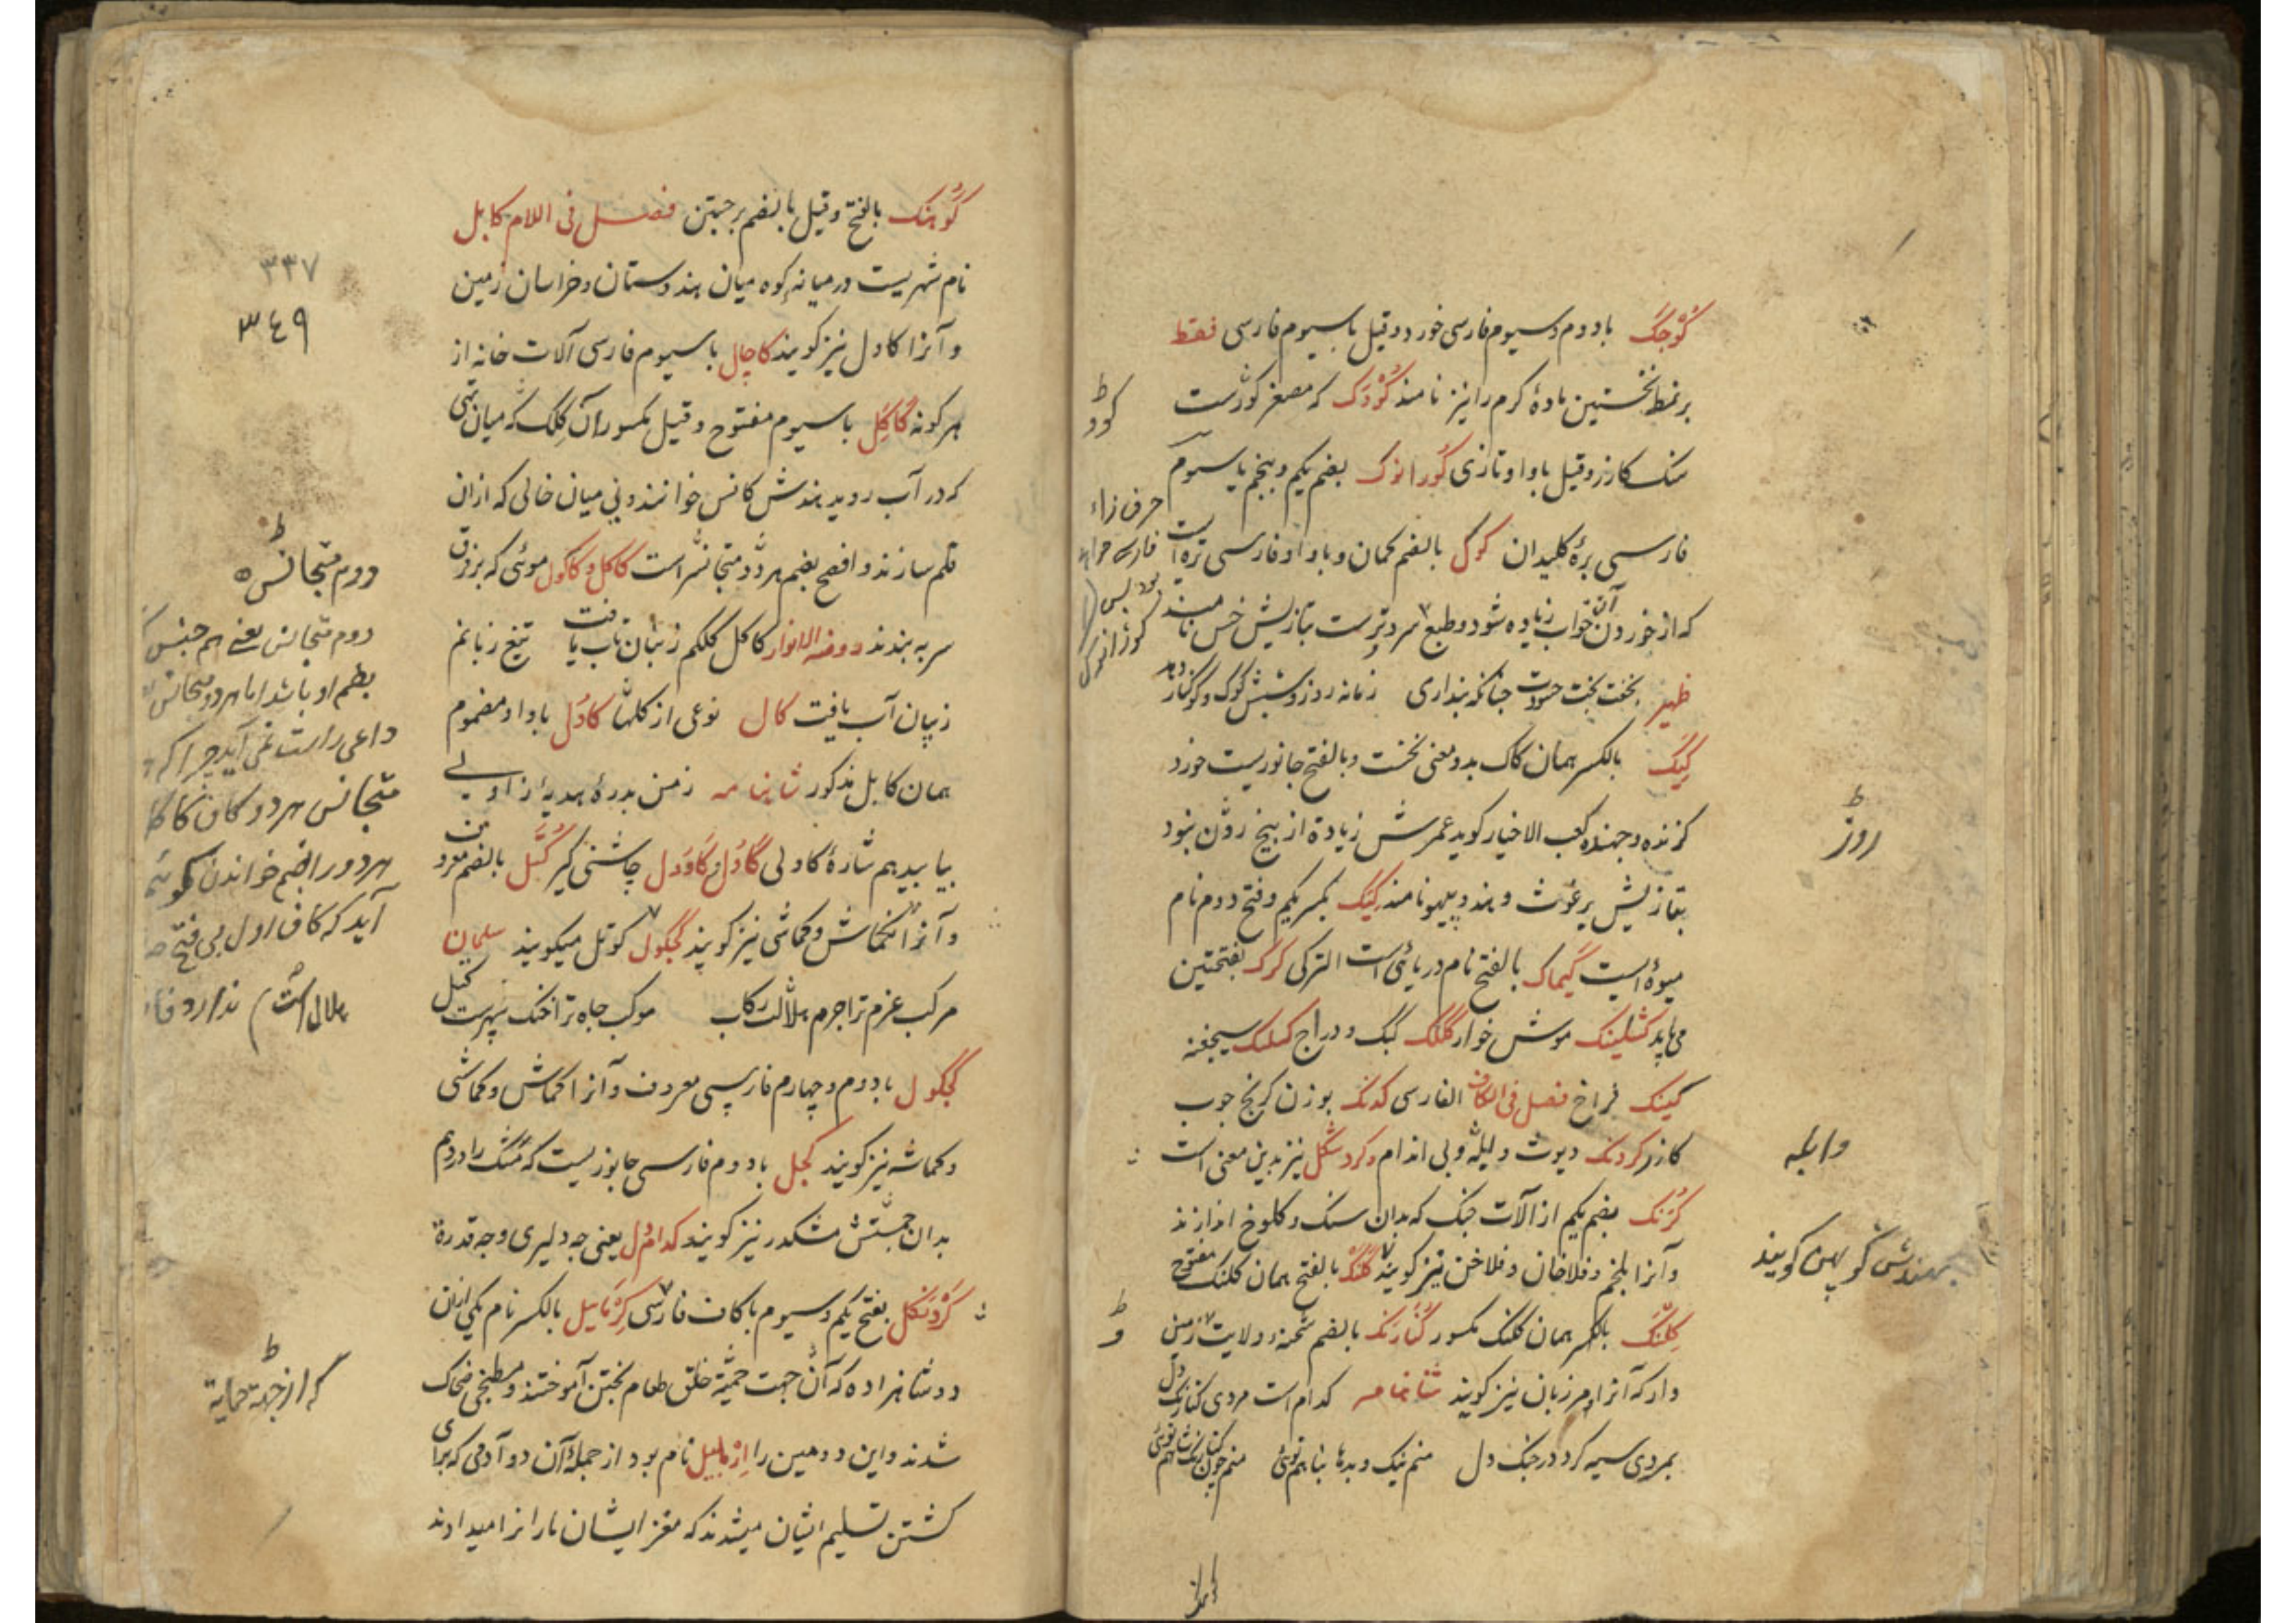 کوچک بادوم و سیوم فارسی خورد و قیل با سیوم فارسی فقط
بر نمط نخستین مادهٔ کرم را نیز نامند کودک که مصغر کودست
سنک کازر و قیل با واو تازی کورانوک بضم یکم و پنجم با سیوم
فارسی برهٔ کلیدان کوک بالضم کمان و با واو فارسی تره است
که از خوردن آن خواب زیاده شود و طبع سرد ترست بتازیش خس نامند
ظهیر بخفت بخت حسودت چنانکه پنداری زمانه روز و شبش کوک و کوکنار دهد
کیک بالکسر همان کاک بدو معنی نخست و بالفتح جانوریست خورد
کزنده و جهنده کعب الاخیار کوید عمرش زیادة از پنج روز نبود
بتازیش برغوث و هندو پیهو نامند کیک بکسر یکم و فتح دوم نام
میوهٔ است کیماک بالفتح نام دریائی است الترکی کرک بفتحتین
می باید کشلینک موش خوار کلک کبک و دراج کسلک
کینک فراخ فصل فی الکاف الفارسی کدنک بوزن کرنج چوب
کازر کردنک دیوث و ابله و بی اندام و کردنکل نیز بدین معنی است
کرنک بضم یکم از آلات جنک که بدان سنک و کلوخ اندازند
وآنرا بلخم و فلاخان و فلاخن نیز کویند کلنک بالفتح همان کلنک مفتوح
کلنک بالکسر همان کلنک مکسور کنارنک بالضم شحنه و ولایت و زمین
دار که آنرا مرزبان نیز کویند شاهنامه کدام است مردی کنارنک دل
بمردی سیه کرد در جنک دل منم نیک و بدها تباهم توئی منم چون کنارنک شاهم توئی
کود
حرف زاء
روز
وابله
بهندش کوپهن کویند
کوهنک بالفتح و قیل بالضم برجستن فصل فی اللام کابل
نام شهریست در میانه کوه میان هندوستان و خراسان زمین
و آنرا کاول نیز کویند کاچال با سیوم فارسی آلات خانه از
هر کونه کاکل با سیوم مفتوح و قیل مکسور آن کلک که میان تهی
که در آب روید هندش کانس خوانند و نی میان خالی که ازان
قلم سازند و افصح بضم هر دو متجانس است کاکل و کاکول موئی که بر فرق
سر به بندند روضة الانوار کاکل کلکم ز بنان تاب یافت تیغ زبانم
ز بیان آب یافت کال نوعی از کلها کاول با واو مضموم
همان کابل مذکور شاهنامه ز من بدرهٔ هدیهٔ زاولی
بیابید هم شارهٔ کاولی کاول و کاودل چاشنی کیر کپل بالضم سرون
و آنرا کفماش و کماشی نیز کویند کچکول کوتل میکویند سلمان
مرکب عزم ترا جرم هلالت رکاب موکب جاه ترا خنک سپهرست کتل
کچکول با دوم و چهارم فارسی معروف و آنرا کماش و کماشی
و کماشه نیز کویند کجل با دوم فارسی جانوریست که مشک را در دم
بدان جستش مشکدر نیز کویند کدام دل یعنی چه دلیری و چه قدرة
کردنکل بفتح یکم و سیوم با کاف فارسی کرمایل بالکسر نام یکی ازان
دو شاهزاده که آن جهت حمیة خلق طعام پختن آموختند و مطبخی ضحاک
شدند و این دومین را ارمایل نام بود از جملهٔ آن دو آدمی که برای
کشتن تسلیم ایشان میشدند که مغز ایشان ماران را میدادند
۳۳۷
۳٤۹
دوم متجانس
دوم متجانس یعنی هم جنس
داعی راست نمی آید چرا که
متجانس هر دو کاف کاکا
هر دو را بضم خواندن
آید که کاف اول بی فتح
هلال است ندارد
که از جهة حمایة